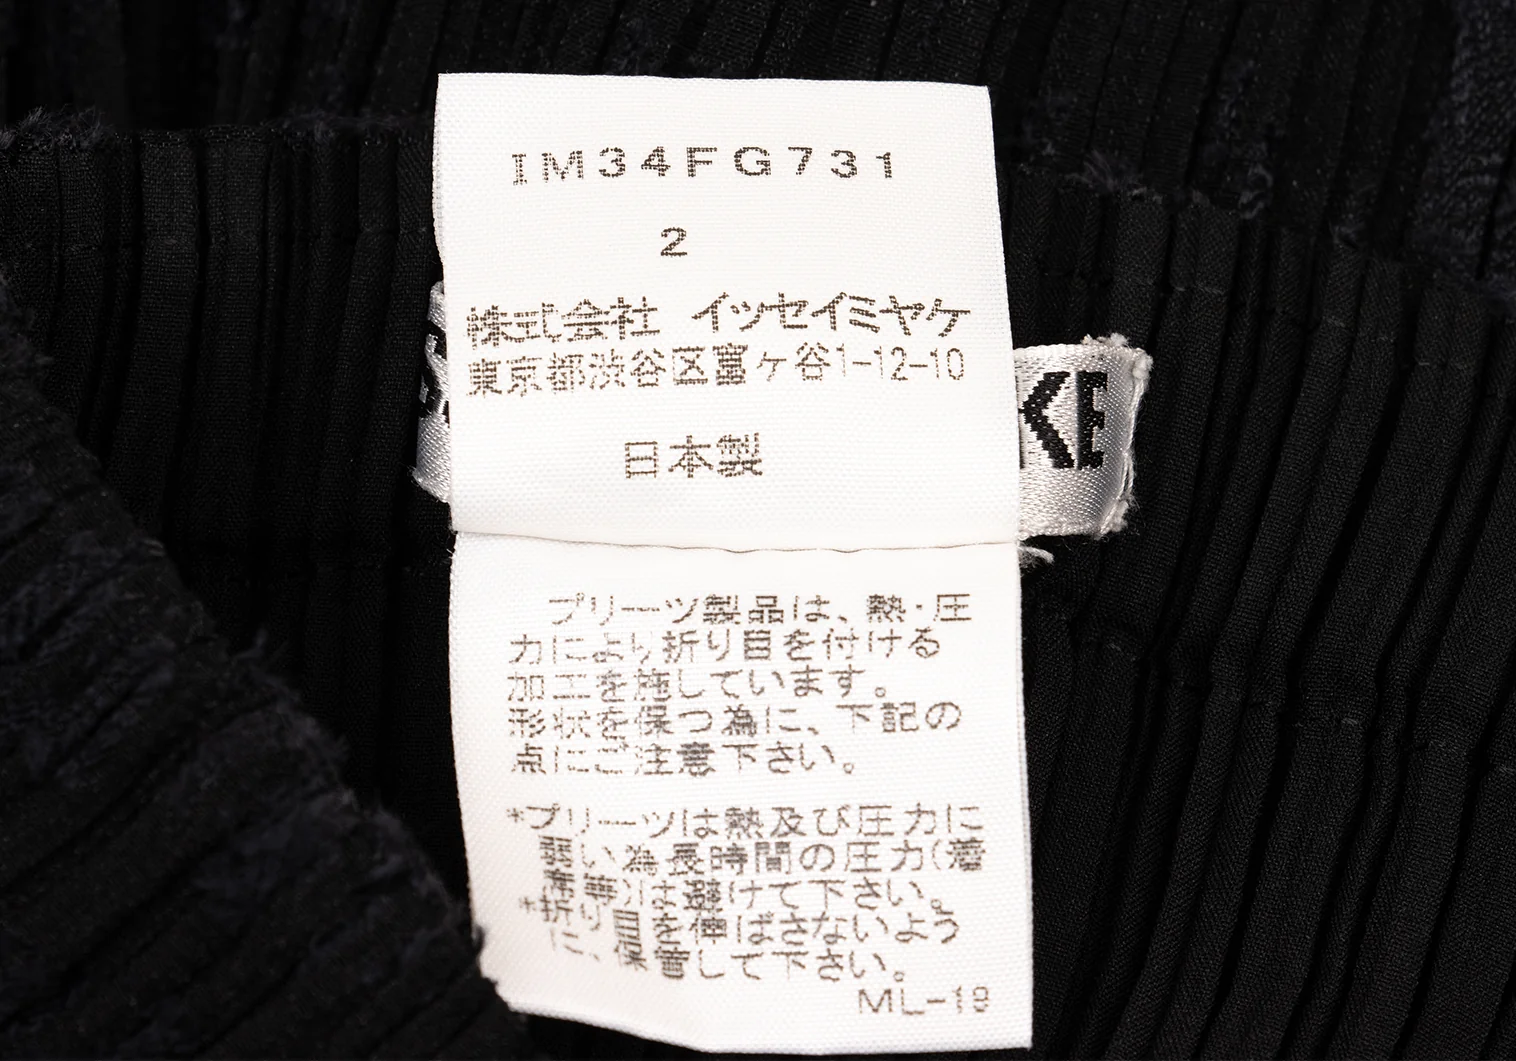 IM34FG731
2
株式会社 イッセイミヤケ
東京都渋谷区富ヶ谷1-12-10
KE
日本製
プリーツ製品は、熱・圧
力により折り目を付ける
加工を施しています。
形状を保つ為に、下記の
点にご注意下さい。
*プリーツは熱及び圧力に
弱い為長時間の圧力(着
席等)は避けて下さい。
*折り皿を伸ばさないよう
に、保管して下さい。
ML-19